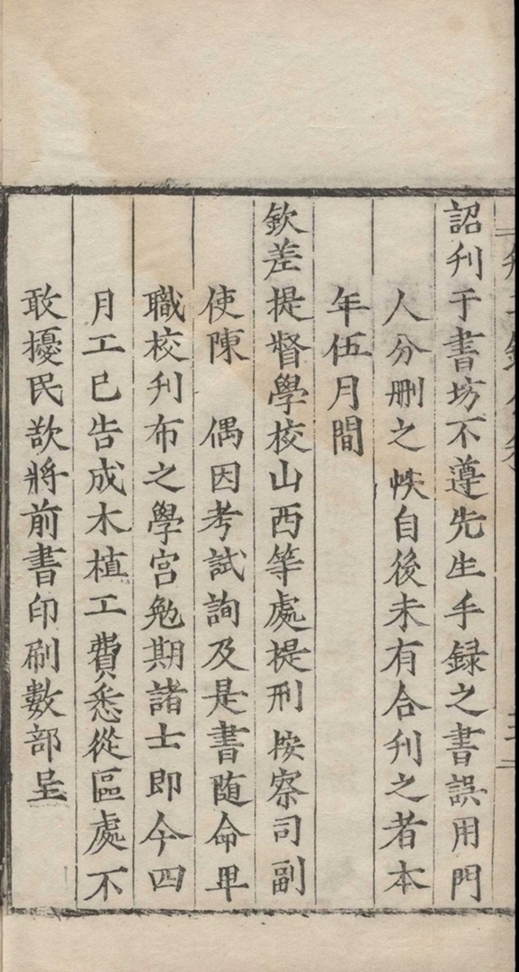 詔刋于書坊不遵先生手録之書誤用門
人分刪之帙自後未有合刋之者本
年伍月間
欽差提督學校山西等處提刑按察司副
使陳 偶因考試詢及是書随命卑
職校刋布之學宮勉期諸士即今四
月工已告成木植工費悉從區處不
敢擾民欵將前書印刷數部呈